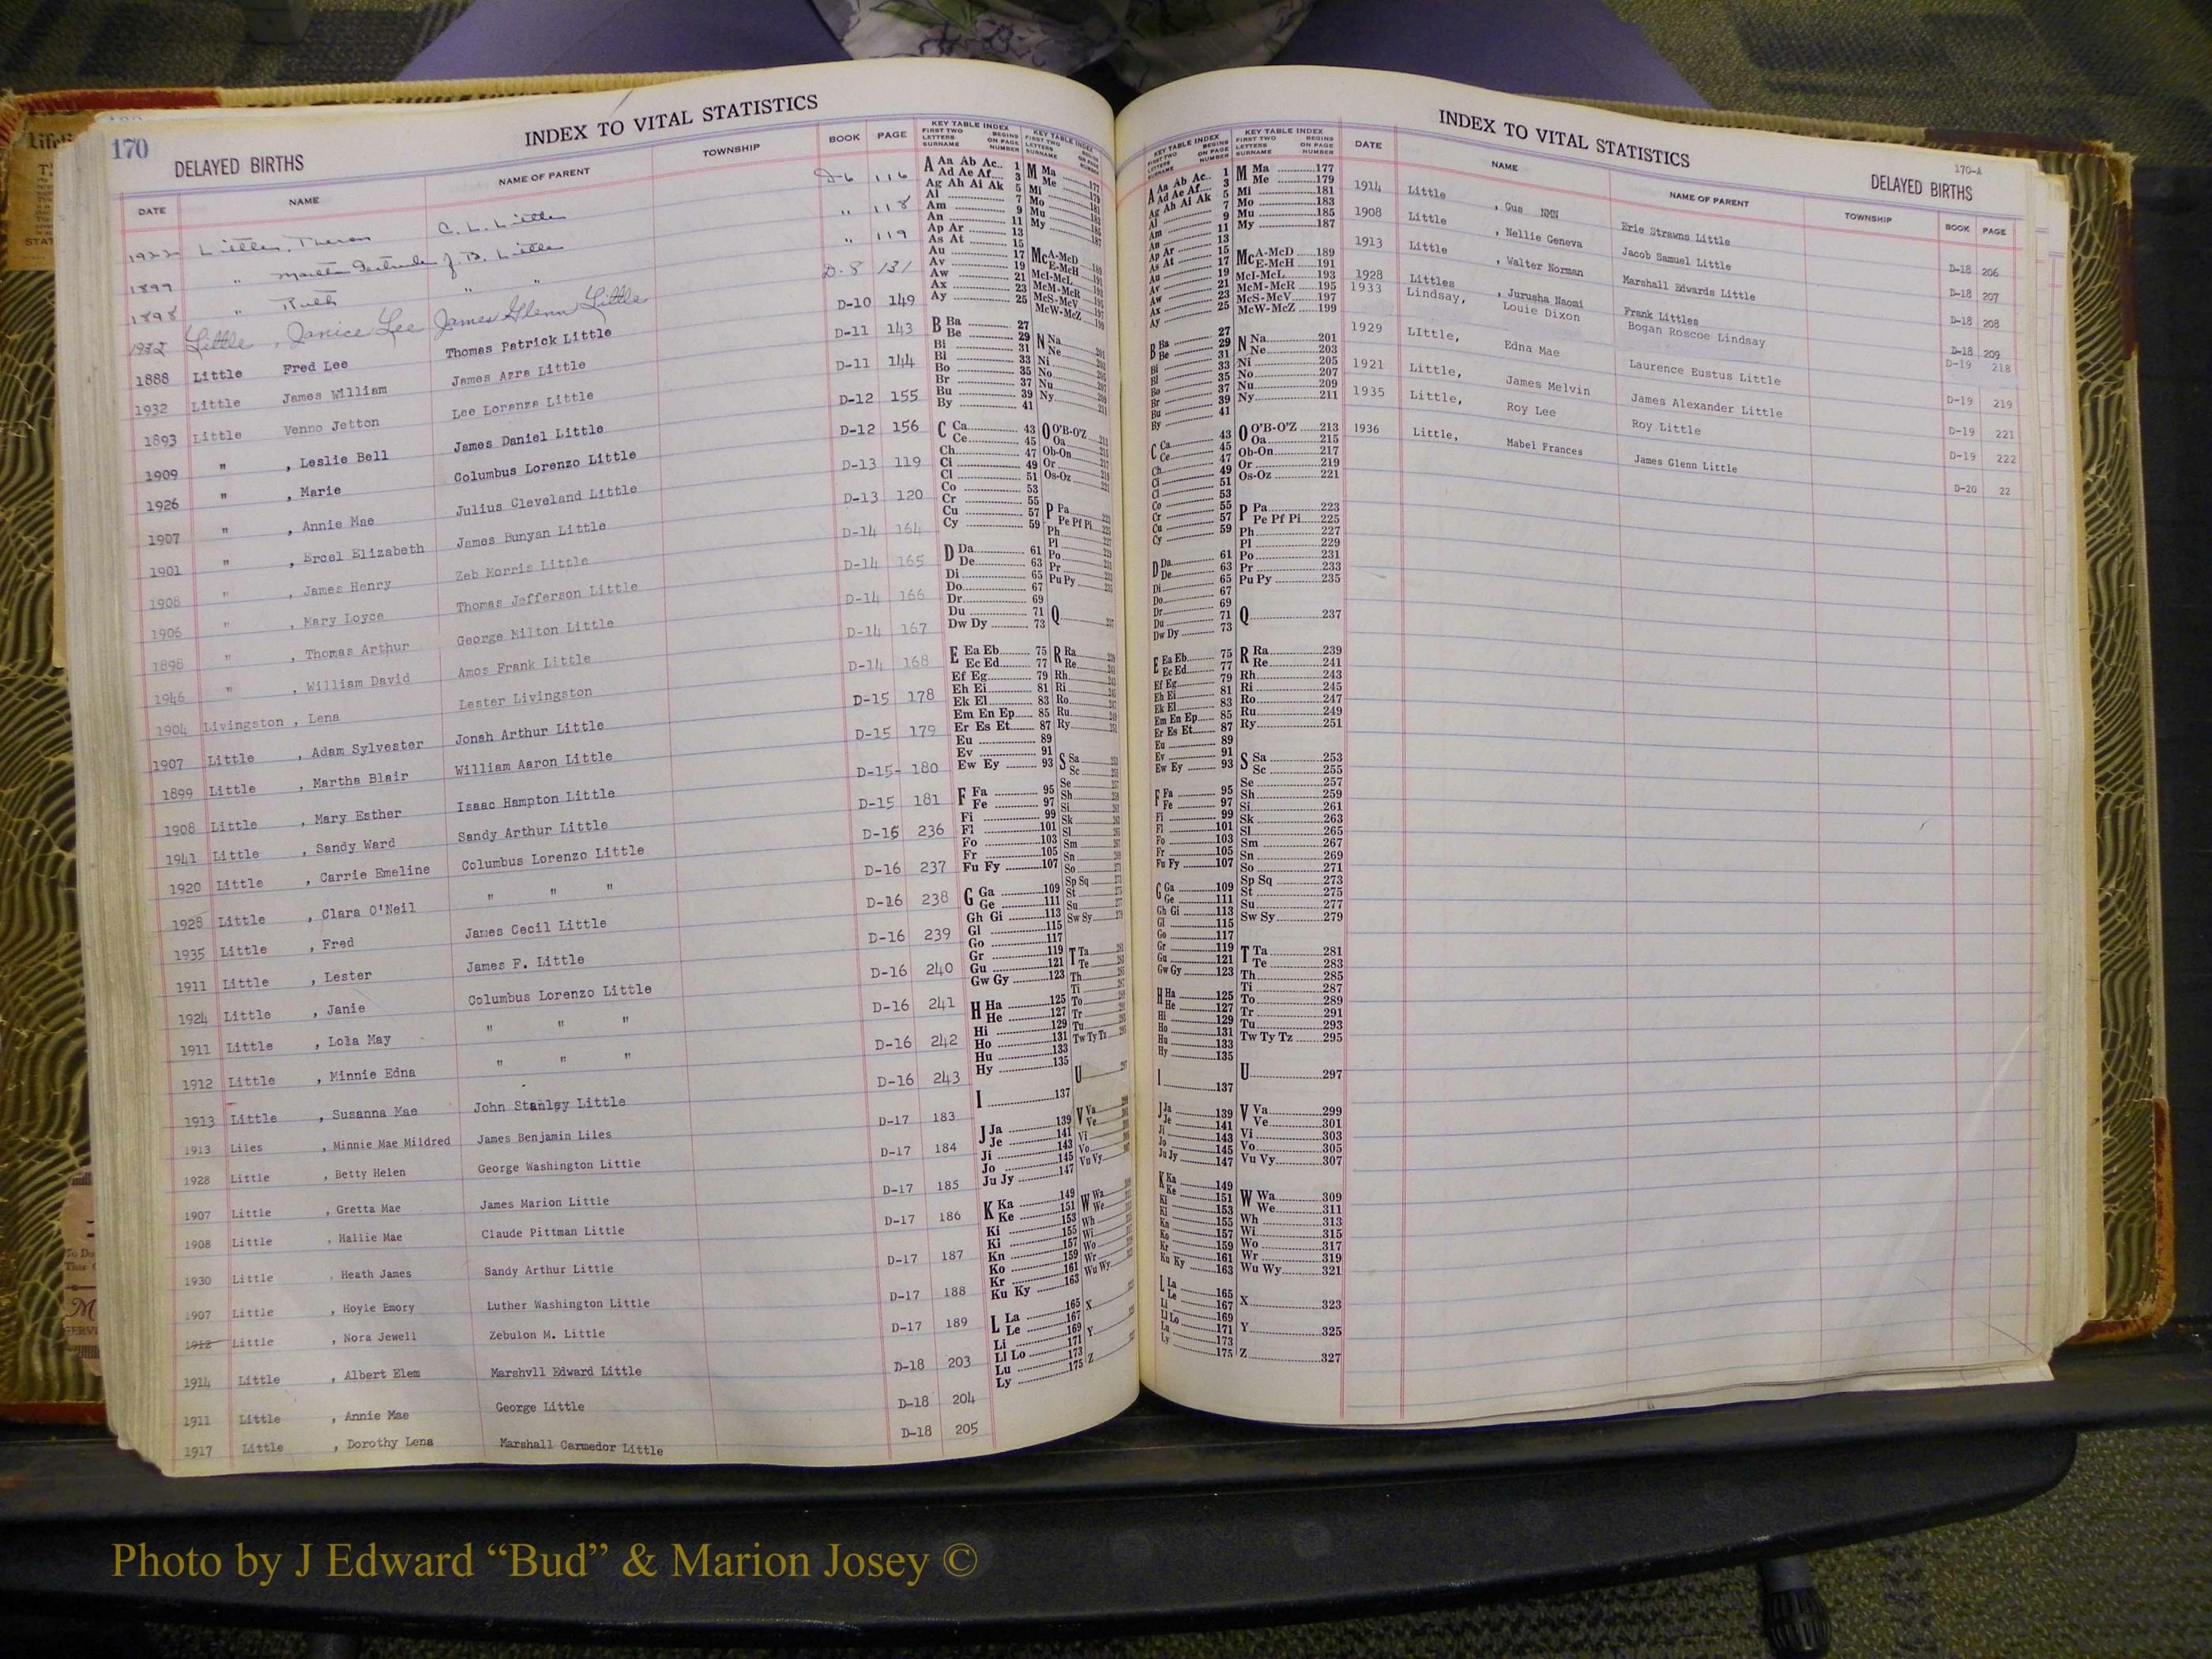 170
INDEX TO VITAL STATISTICS
DELAYED BIRTHS
DATE NAME NAME OF PARENT TOWNSHIP BOOK PAGE
1922 Little, Theron C. L. Little D-6 116
1899 " J. B. Little " 118
1898 " Ruth " " " 119
1932 Little, Janice Lee James Glenn Little D-8 131
1888 Little Fred Lee Thomas Patrick Little D-10 149
1932 Little James William James Azra Little D-11 143
1893 Little Venno Jetton Lee Lorenza Little D-11 144
1909 " , Leslie Bell James Daniel Little D-12 155
1926 " , Marie Columbus Lorenzo Little D-12 156
1907 " , Annie Mae Julius Cleveland Little D-13 119
1901 " , Ercel Elizabeth James Bunyan Little D-13 120
1908 " , James Henry Zeb Morris Little D-14 164
1906 " , Mary Loyce Thomas Jefferson Little D-14 165
1898 " , Thomas Arthur George Milton Little D-14 166
1946 " , William David Amos Frank Little D-14 167
1904 Livingston , Lena Lester Livingston D-14 168
1907 Little , Adam Sylvester Jonah Arthur Little D-15 178
1899 Little , Martha Blair William Aaron Little D-15 179
1908 Little , Mary Esther Isaac Hampton Little D-15- 180
1941 Little , Sandy Ward Sandy Arthur Little D-15 181
1920 Little , Carrie Emeline Columbus Lorenzo Little D-16 236
1928 Little , Clara O'Neil " " " D-16 237
1935 Little , Fred James Cecil Little D-16 238
1911 Little , Lester James F. Little D-16 239
1924 Little , Janie Columbus Lorenzo Little D-16 240
1911 Little , Lola May " " " D-16 241
1912 Little , Minnie Edna " " " D-16 242
1913 Little , Susanna Mae John Stanley Little D-16 243
1913 Liles , Minnie Mae Mildred James Benjamin Liles D-17 183
1928 Little , Betty Helen George Washington Little D-17 184
1907 Little , Gretta Mae James Marion Little D-17 185
1908 Little , Hallie Mae Claude Pittman Little D-17 186
1930 Little , Heath James Sandy Arthur Little D-17 187
1907 Little , Hoyle Emory Luther Washington Little D-17 188
1912 Little , Nora Jewell Zebulon M. Little D-17 189
1914 Little , Albert Elem Marshvll Edward Little D-18 203
1911 Little , Annie Mae George Little D-18 204
1917 Little , Dorothy Lena Marshall Carmedor Little D-18 205
KEY TABLE INDEX
FIRST TWO LETTERS SURNAME BEGINS ON PAGE NUMBER
A Aa Ab Ac.. 1
Ad Ae Af.... 3
Ag Ah Ai Ak 5
Al 7
Am 9
An 11
Ap Ar 13
As At 15
Au 17
Av 19
Aw 21
Ax 23
Ay 25
B Ba 27
Be 29
Bi 31
Bl 33
Bo 35
Br 37
Bu 39
By 41
C Ca 43
Ce 45
Ch 47
Ci 49
Cl 51
Co 53
Cr 55
Cu 57
Cy 59
D Da 61
De 63
Di 65
Do 67
Dr 69
Du 71
Dw Dy 73
E Ea Eb 75
Ec Ed 77
Ef Eg 79
Eh Ei 81
Ek El 83
Em En Ep 85
Er Es Et 87
Eu 89
Ev 91
Ew Ey 93
F Fa 95
Fe 97
Fi 99
Fl 101
Fo 103
Fr 105
Fu Fy 107
G Ga 109
Ge 111
Gh Gi 113
Gl 115
Go 117
Gr 119
Gu 121
Gw Gy 123
H Ha 125
He 127
Hi 129
Ho 131
Hu 133
Hy 135
I 137
J Ja 139
Je 141
Ji 143
Jo 145
Ju Jy 147
K Ka 149
Ke 151
Ki 153
Ki 155
Kn 157
Ko 159
Kr 161
Ku Ky 163
L La 165
Le 167
Li 169
Ll Lo 171
Lu 173
Ly 175
INDEX TO VITAL STATISTICS
170-A
DELAYED BIRTHS
KEY TABLE INDEX
FIRST TWO LETTERS SURNAME BEGINS ON PAGE NUMBER
M Ma 177
Me 179
Mi 181
Mo 183
Mu 185
My 187
McA-McD 189
McE-McH 191
McI-McL 193
McM-McR 195
McS-McV 197
McW-McZ 199
N Na 201
Ne 203
Ni 205
No 207
Nu 209
Ny 211
O O'B-O'Z 213
Oa 215
Ob-On 217
Or 219
Os-Oz 221
P Pa 223
Pe Pf Pi 225
Ph 227
Pl 229
Po 231
Pr 233
Pu Py 235
Q 237
R Ra 239
Re 241
Rh 243
Ri 245
Ro 247
Ru 249
Ry 251
S Sa 253
Sc 255
Se 257
Sh 259
Si 261
Sk 263
Sl 265
Sm 267
Sn 269
So 271
Sp Sq 273
St 275
Su 277
Sw Sy 279
T Ta 281
Te 283
Th 285
Ti 287
To 289
Tr 291
Tu 293
Tw Ty Tz 295
U 297
V Va 299
Ve 301
Vi 303
Vo 305
Vu Vy 307
W Wa 309
We 311
Wh 313
Wi 315
Wo 317
Wr 319
Wu Wy 321
X 323
Y 325
Z 327
DATE NAME NAME OF PARENT TOWNSHIP BOOK PAGE
1914 Little , Gus NMN Erie Strawns Little D-18 206
1908 Little , Nellie Geneva Jacob Samuel Little D-18 207
1913 Little , Walter Norman Marshall Edwards Little D-18 208
1928 Littles , Jurusha Naomi Frank Littles D-18 209
1933 Lindsay, Louie Dixon Bogan Roscoe Lindsay D-19 218
1929 LIttle, Edna Mae Laurence Eustus Little D-19 219
1921 Little, James Melvin James Alexander Little D-19 221
1935 Little, Roy Lee Roy Little D-19 222
1936 Little, Mabel Frances James Glenn Little D-20 22
Photo by J Edward “Bud” & Marion Josey ©